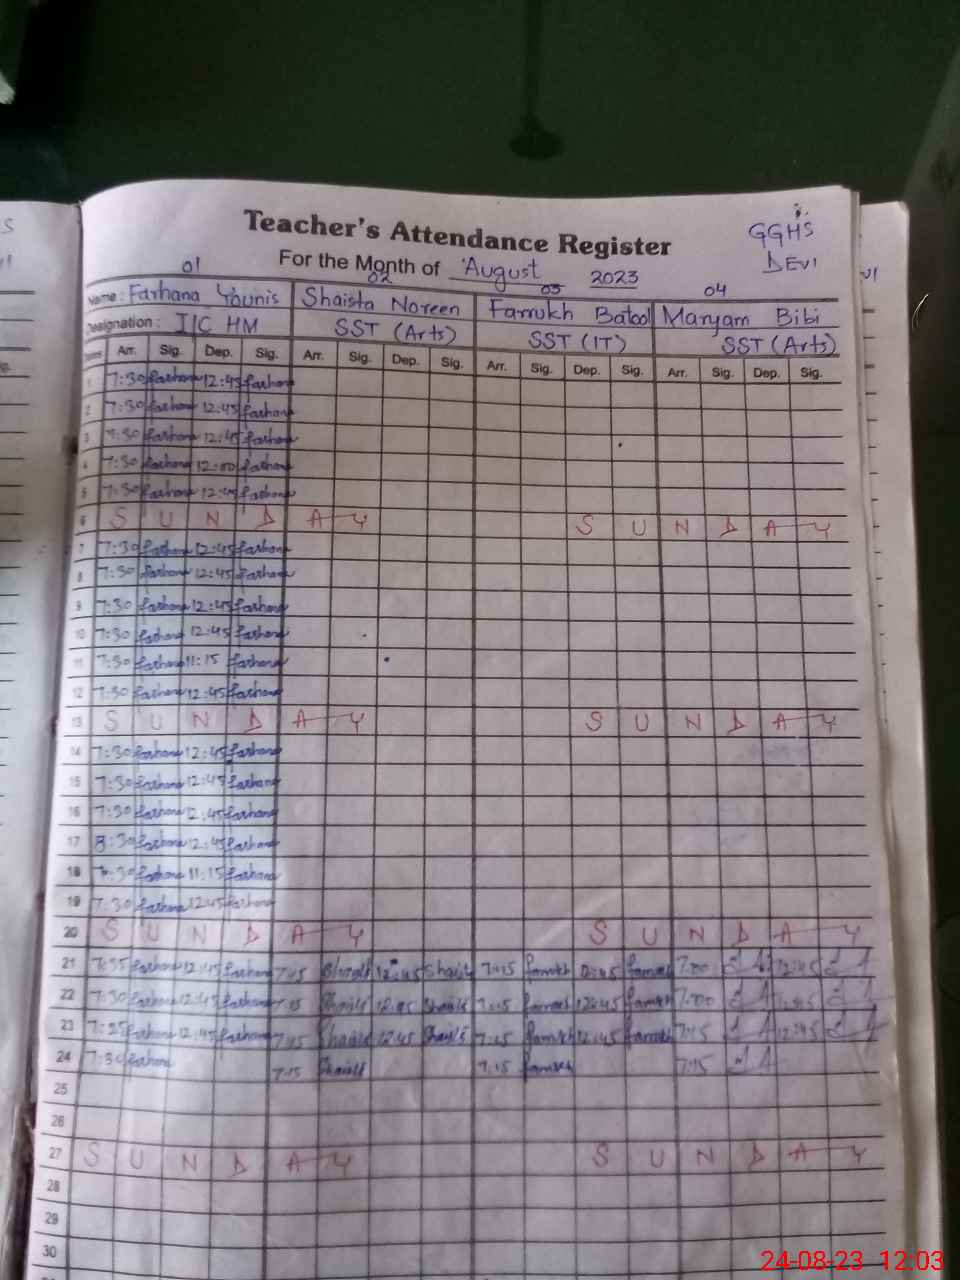 Teacher's Attendance Register
GGHS
DEVI
For the Month of August 2023
01 02 03 04
Name : Farhana Younis Shaista Noreen Farrukh Batool Maryam Bibi
Designation : I/C HM SST (Arts) SST (IT) SST (Arts)
Arr. Sig. Dep. Sig. Arr. Sig. Dep. Sig. Arr. Sig. Dep. Sig. Arr. Sig. Dep. Sig.
1 7:30 farhana 12:45 farhana
2 7:30 farhana 12:45 farhana
3 7:30 farhana 12:45 farhana
4 7:30 farhana 12:00 farhana
5 7:30 farhana 12:45 farhana
6 S U N D A Y S U N D A Y
7 7:30 farhana 12:45 farhana
8 7:30 farhana 12:45 farhana
9 7:30 farhana 12:45 farhana
10 7:30 farhana 12:45 farhana
11 7:30 farhana 11:15 farhana
12 7:30 farhana 12:45 farhana
13 S U N D A Y S U N D A Y
14 7:30 farhana 12:45 farhana
15 7:30 farhana 12:45 farhana
16 7:30 farhana 12:45 farhana
17 8:30 farhana 12:45 farhana
18 7:30 farhana 11:15 farhana
19 7:30 farhana 12:45 farhana
20 S U N D A Y S U N D A Y
21 7:35 farhana 12:45 farhana 7:15 12:45 7:15 farrukh 12:45 farrukh 7:00 12:45
22 7:30 farhana 12:45 farhana 7:15 12:45 7:15 farrukh 12:45 farrukh 7:00 12:45
23 7:35 farhana 12:45 farhana 7:15 12:45 7:15 farrukh 12:45 farrukh 7:15 12:45
24 7:30 farhana 7:15 7:15 farrukh 7:15
25
26
27 S U N D A Y S U N D A Y
28
29
30
24-08-23 12:03